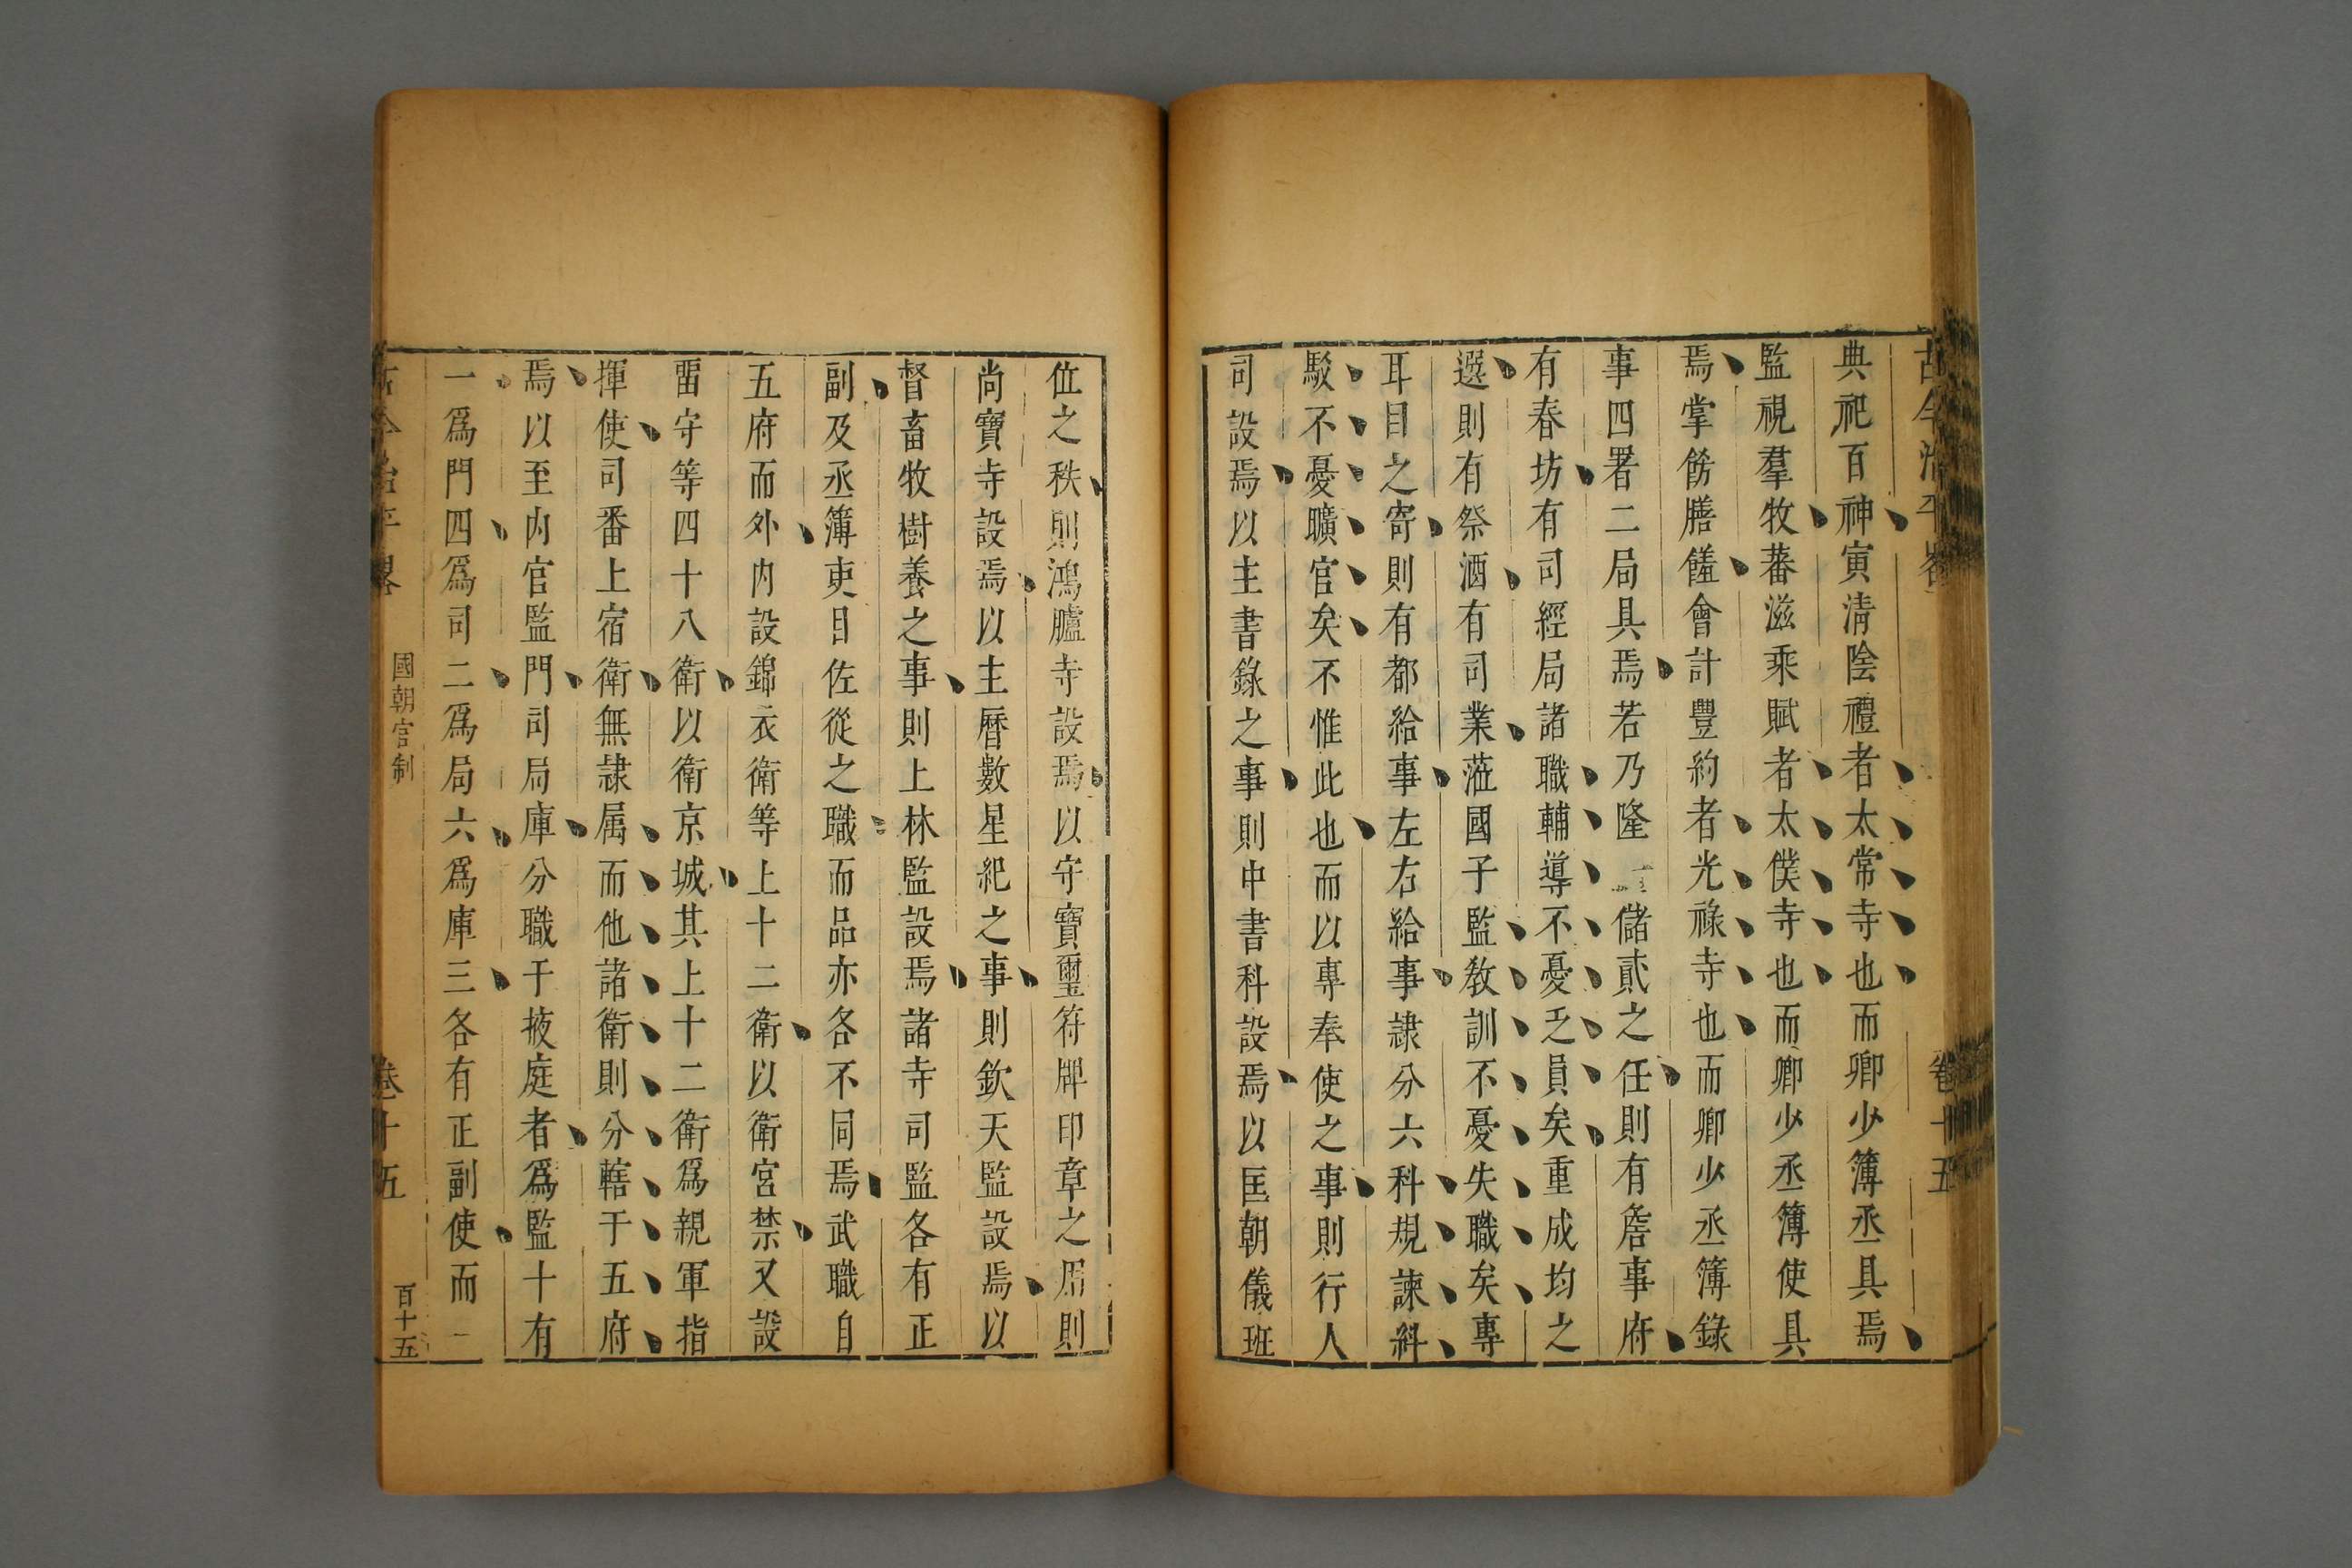 古今治平畧
卷十五
典祀百神寅清陰禮者太常寺也而卿少簿丞具焉
監視羣牧蕃滋乘賦者太僕寺也而卿少丞簿使具
焉掌餝膳饈會計豐約者光祿寺也而卿少丞簿錄
事四署二局具焉若乃隆儲貳之任則有詹事府
有春坊有司經局諸職輔導不憂乏員矣重成均之
選則有祭酒有司業蒞國子監教訓不憂失職矣專
耳目之寄則有都給事左右給事隷分六科規諫糾
駁不憂曠官矣不惟此也而以專奉使之事則行人
司設焉以主書錄之事則中書科設焉以匡朝儀班
位之秩則鴻臚寺設焉以守寶璽符牌印章之用則
尚寶寺設焉以主曆數星紀之事則欽天監設焉以
督畜牧樹養之事則上林監設焉諸寺司監各有正
副及丞簿吏目佐從之職而品亦各不同焉武職自
五府而外内設錦衣衛等上十二衛以衛宮禁又設
畱守等四十八衛以衛京城其上十二衛爲親軍指
揮使司番上宿衛無隷属而他諸衛則分轄于五府
焉以至内官監門司局庫分職于掖庭者爲監十有
一爲門四爲司二爲局六爲庫三各有正副使而一
古今治平畧
國朝官制
卷十五
百十五